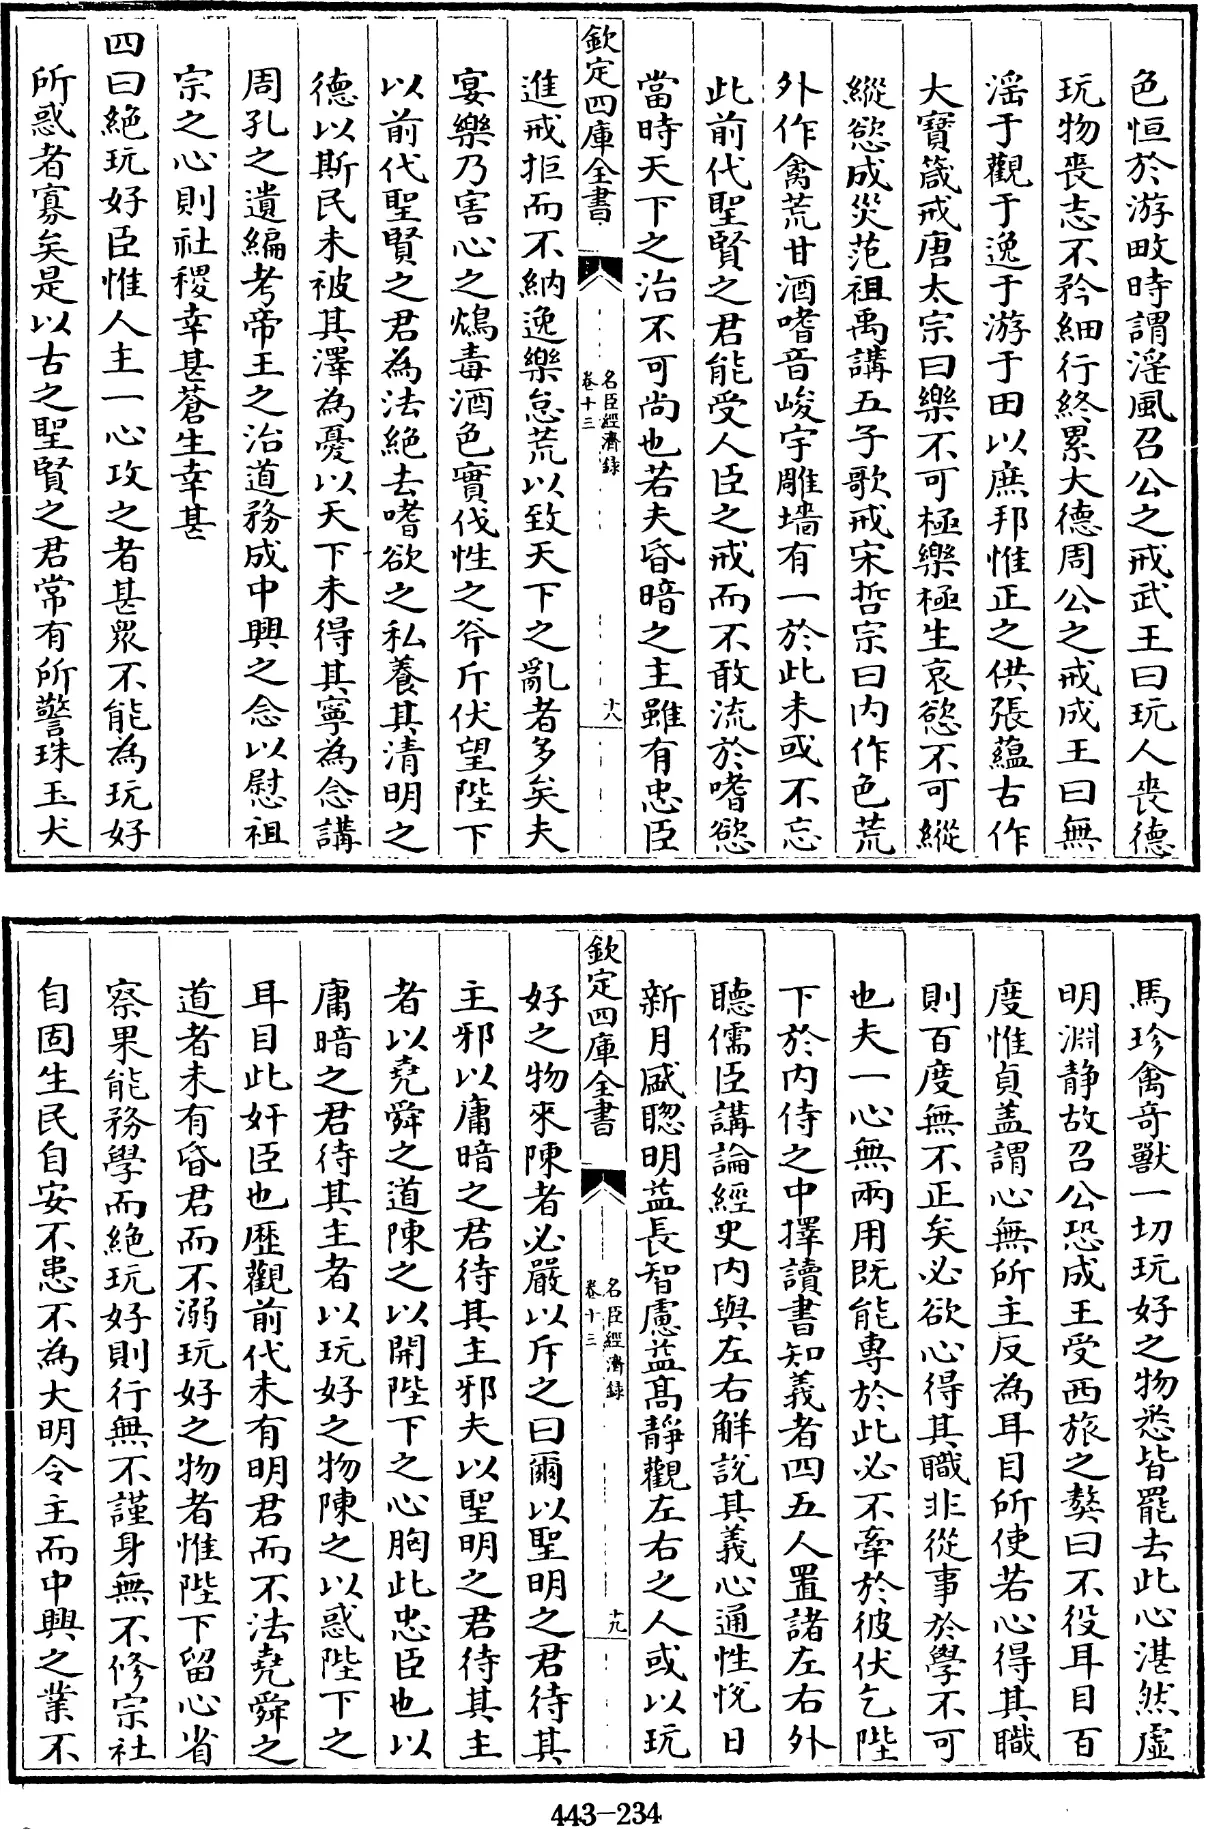 色恒於游畋時謂淫風召公之戒武王曰玩人喪德
玩物喪志不矜細行終累大德周公之戒成王曰無
淫于觀于逸于游于田以庶邦惟正之供張蘊古作
大寶箴戒唐太宗曰樂不可極樂極生哀慾不可縱
縱慾成災范祖禹講五子歌戒宋哲宗曰内作色荒
外作禽荒甘酒嗜音峻宇雕墻有一於此未或不忘
此前代聖賢之君能受人臣之戒而不敢流於嗜慾
當時天下之治不可尚也若夫昏暗之主雖有忠臣
欽定四庫全書
名臣經濟録
卷十三
十八
進戒拒而不納逸樂怠荒以致天下之亂者多矣夫
宴樂乃害心之鴆毒酒色實伐性之斧斤伏望陛下
以前代聖賢之君為法絶去嗜欲之私養其清明之
德以斯民未被其澤為憂以天下未得其寧為念講
周孔之遺編考帝王之治道務成中興之念以慰祖
宗之心則社稷幸甚蒼生幸甚
四曰絶玩好臣惟人主一心攻之者甚衆不能為玩好
所惑者寡矣是以古之聖賢之君常有所警珠玉犬
馬珍禽奇獸一切玩好之物悉皆罷去此心湛然虚
明淵静故召公恐成王受西旅之獒曰不役耳目百
度惟貞盖謂心無所主反為耳目所使若心得其職
則百度無不正矣必欲心得其職非從事於學不可
也夫一心無兩用既能專於此必不牽於彼伏乞陛
下於内侍之中擇讀書知義者四五人置諸左右外
聽儒臣講論經史内與左右解説其義心通性悦日
新月盛聰明益長智慮益髙靜觀左右之人或以玩
欽定四庫全書
名臣經濟録
卷十三
十九
好之物來陳者必嚴以斥之曰爾以聖明之君待其
主邪以庸暗之君待其主邪夫以聖明之君待其主
者以堯舜之道陳之以開陛下之心胸此忠臣也以
庸暗之君待其主者以玩好之物陳之以惑陛下之
耳目此奸臣也歴觀前代未有明君而不法堯舜之
道者未有昏君而不溺玩好之物者惟陛下留心省
察果能務學而絶玩好則行無不謹身無不修宗社
自固生民自安不患不為大明令主而中興之業不
443-234